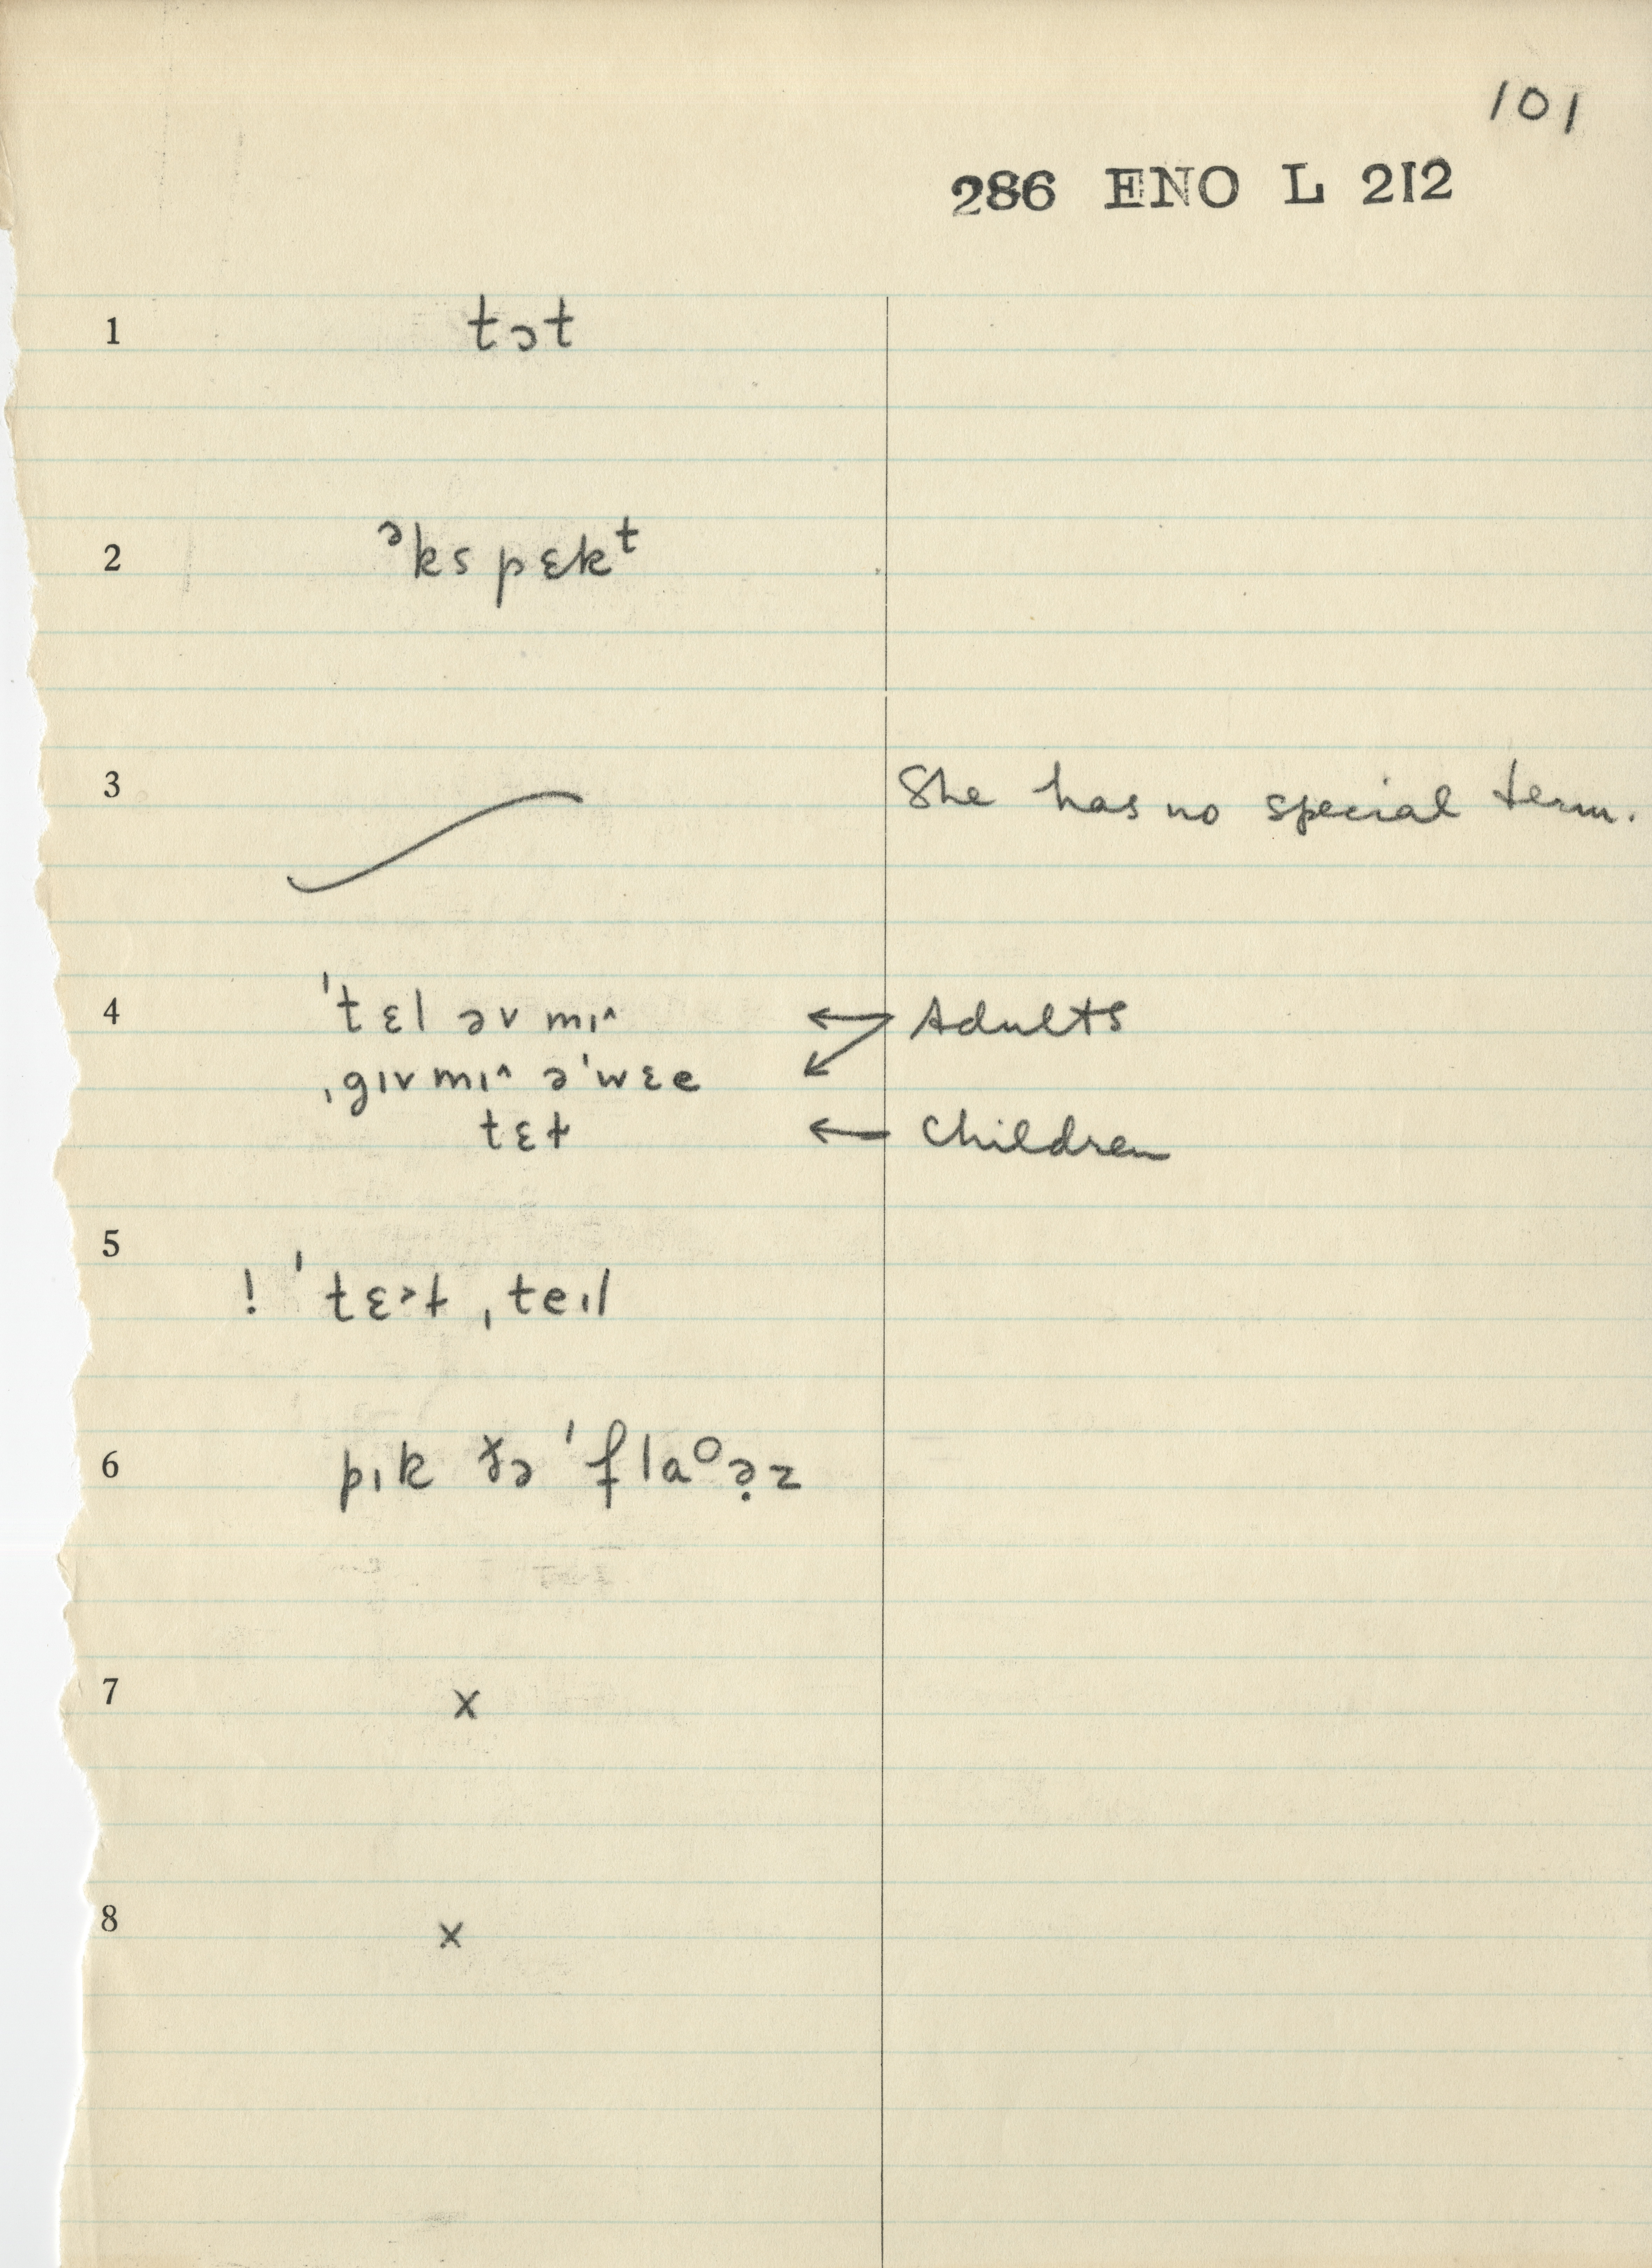 101
286 ENO L 212
1 tɔt
2 ᵊks pɛkᵗ
3 She has no special term.
4 'tɛl əv mɪ˄ ← Adults
ˌgɪv mɪ˄ ə'wɛe
tɛt ← Children
5
! 'tɛ˃t ˌteɪl
6 pɪk ðə 'flaᵒə̣z
7 x
8 x